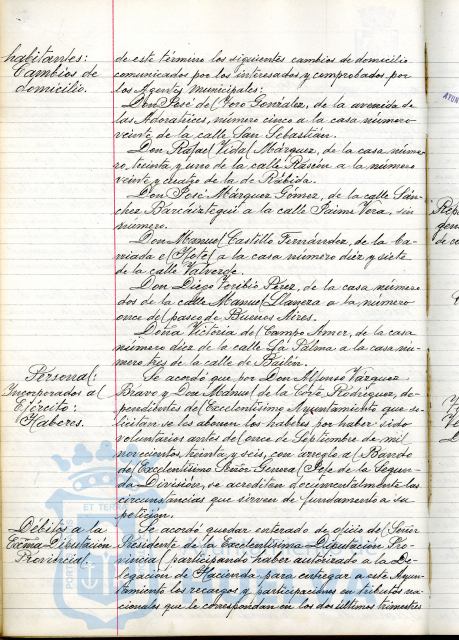 habitantes:
Cambios de
domicilio.
de este término los siguientes cambios de domicilio
comunicados por los interesados y comprobados por
los Agentes municipales:
Don José del Toro González, de la avenida de
las Adoratrices, número cinco a la casa número
veinte de la calle San Sebastián.
Don Rafael Vidal Márquez, de la casa núme-
ro, treinta y uno de la calle Rascón a la número
veinte y cuatro de la de Rábida.
Don José Márquez Gómez, de la calle Sán-
chez Barcáiztegui a la calle Jaime Vera, sin
número.
Don Manuel Castillo Fernández, de la
a la casa número diez y siete
de la calle Valverde.
Don Diego Toribio Pérez, de la casa número
dos de la calle Manuel Llaneza a la número
once del paseo de Buenos Aires.
Doña Victoria del Campo Amor, de la casa
número diez de la calle La Palma a la casa nú-
mero tres de la calle de Bailén.
Personal:
Incorporados al
Ejército:
Haberes.
Se acordó que por Don Alfonso Vázquez
Bravo y Don Manuel de la Rodríguez, de-
pendientes del Excelentísimo Ayuntamiento que so-
licitan se les abonen los haberes por haber sido
voluntarios antes del once de Septiembre de mil
novecientos treinta y seis, con arreglo al Bando
del Excelentísimo Señor General Jefe de la Segun-
da División, se acrediten documentalmente las
circunstancias que sirven de fundamento a su
petición.
Débitos a la
Excma Diputación
Provincial.
Se acordó quedar enterado de oficio del Señor
Presidente de la Excelentísima Diputación Pro-
vincial participando haber autorizado a la De-
legación de Hacienda para entregar a este Ayun-
tamiento los recargos y participaciones en tributos na-
cionales que le correspondan en los dos últimos trimestres
ET TERRA